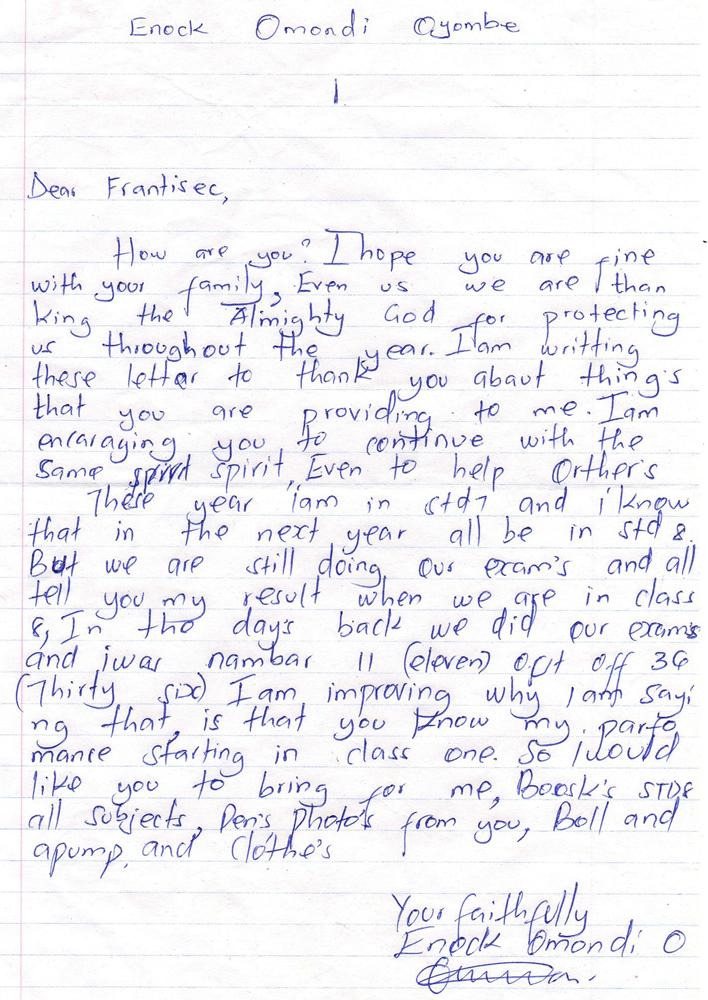 Enock Omondi Oyombe
1
Dear Frantisec,
How are you? I hope you are fine
with your family, Even us we are than
king the Almighty God for protecting
us throughout the year. I am writting
these letter to thank you abaut thing's
that you are providing to me. I am
encaraging you to continue with the
same spirit spirit, Even to help Orther's
These year iam in std 7 and i know
that in the next year all be in std 8.
But we are still doing our exam's and all
tell you my result when we are in class
8, In tho day's back we did our exams
and iwas nambar 11 (eleven) opt off 36
(Thirty six) I am improving why I am sayi
ng that, is that you know my parfo
mance starting in class one. So I would
like you to bring for me, Boosk's STD8
all subjects, Pen's photo's from you, Boll and
apump, and Clothe's
Your faithfully
Enock Omondi O